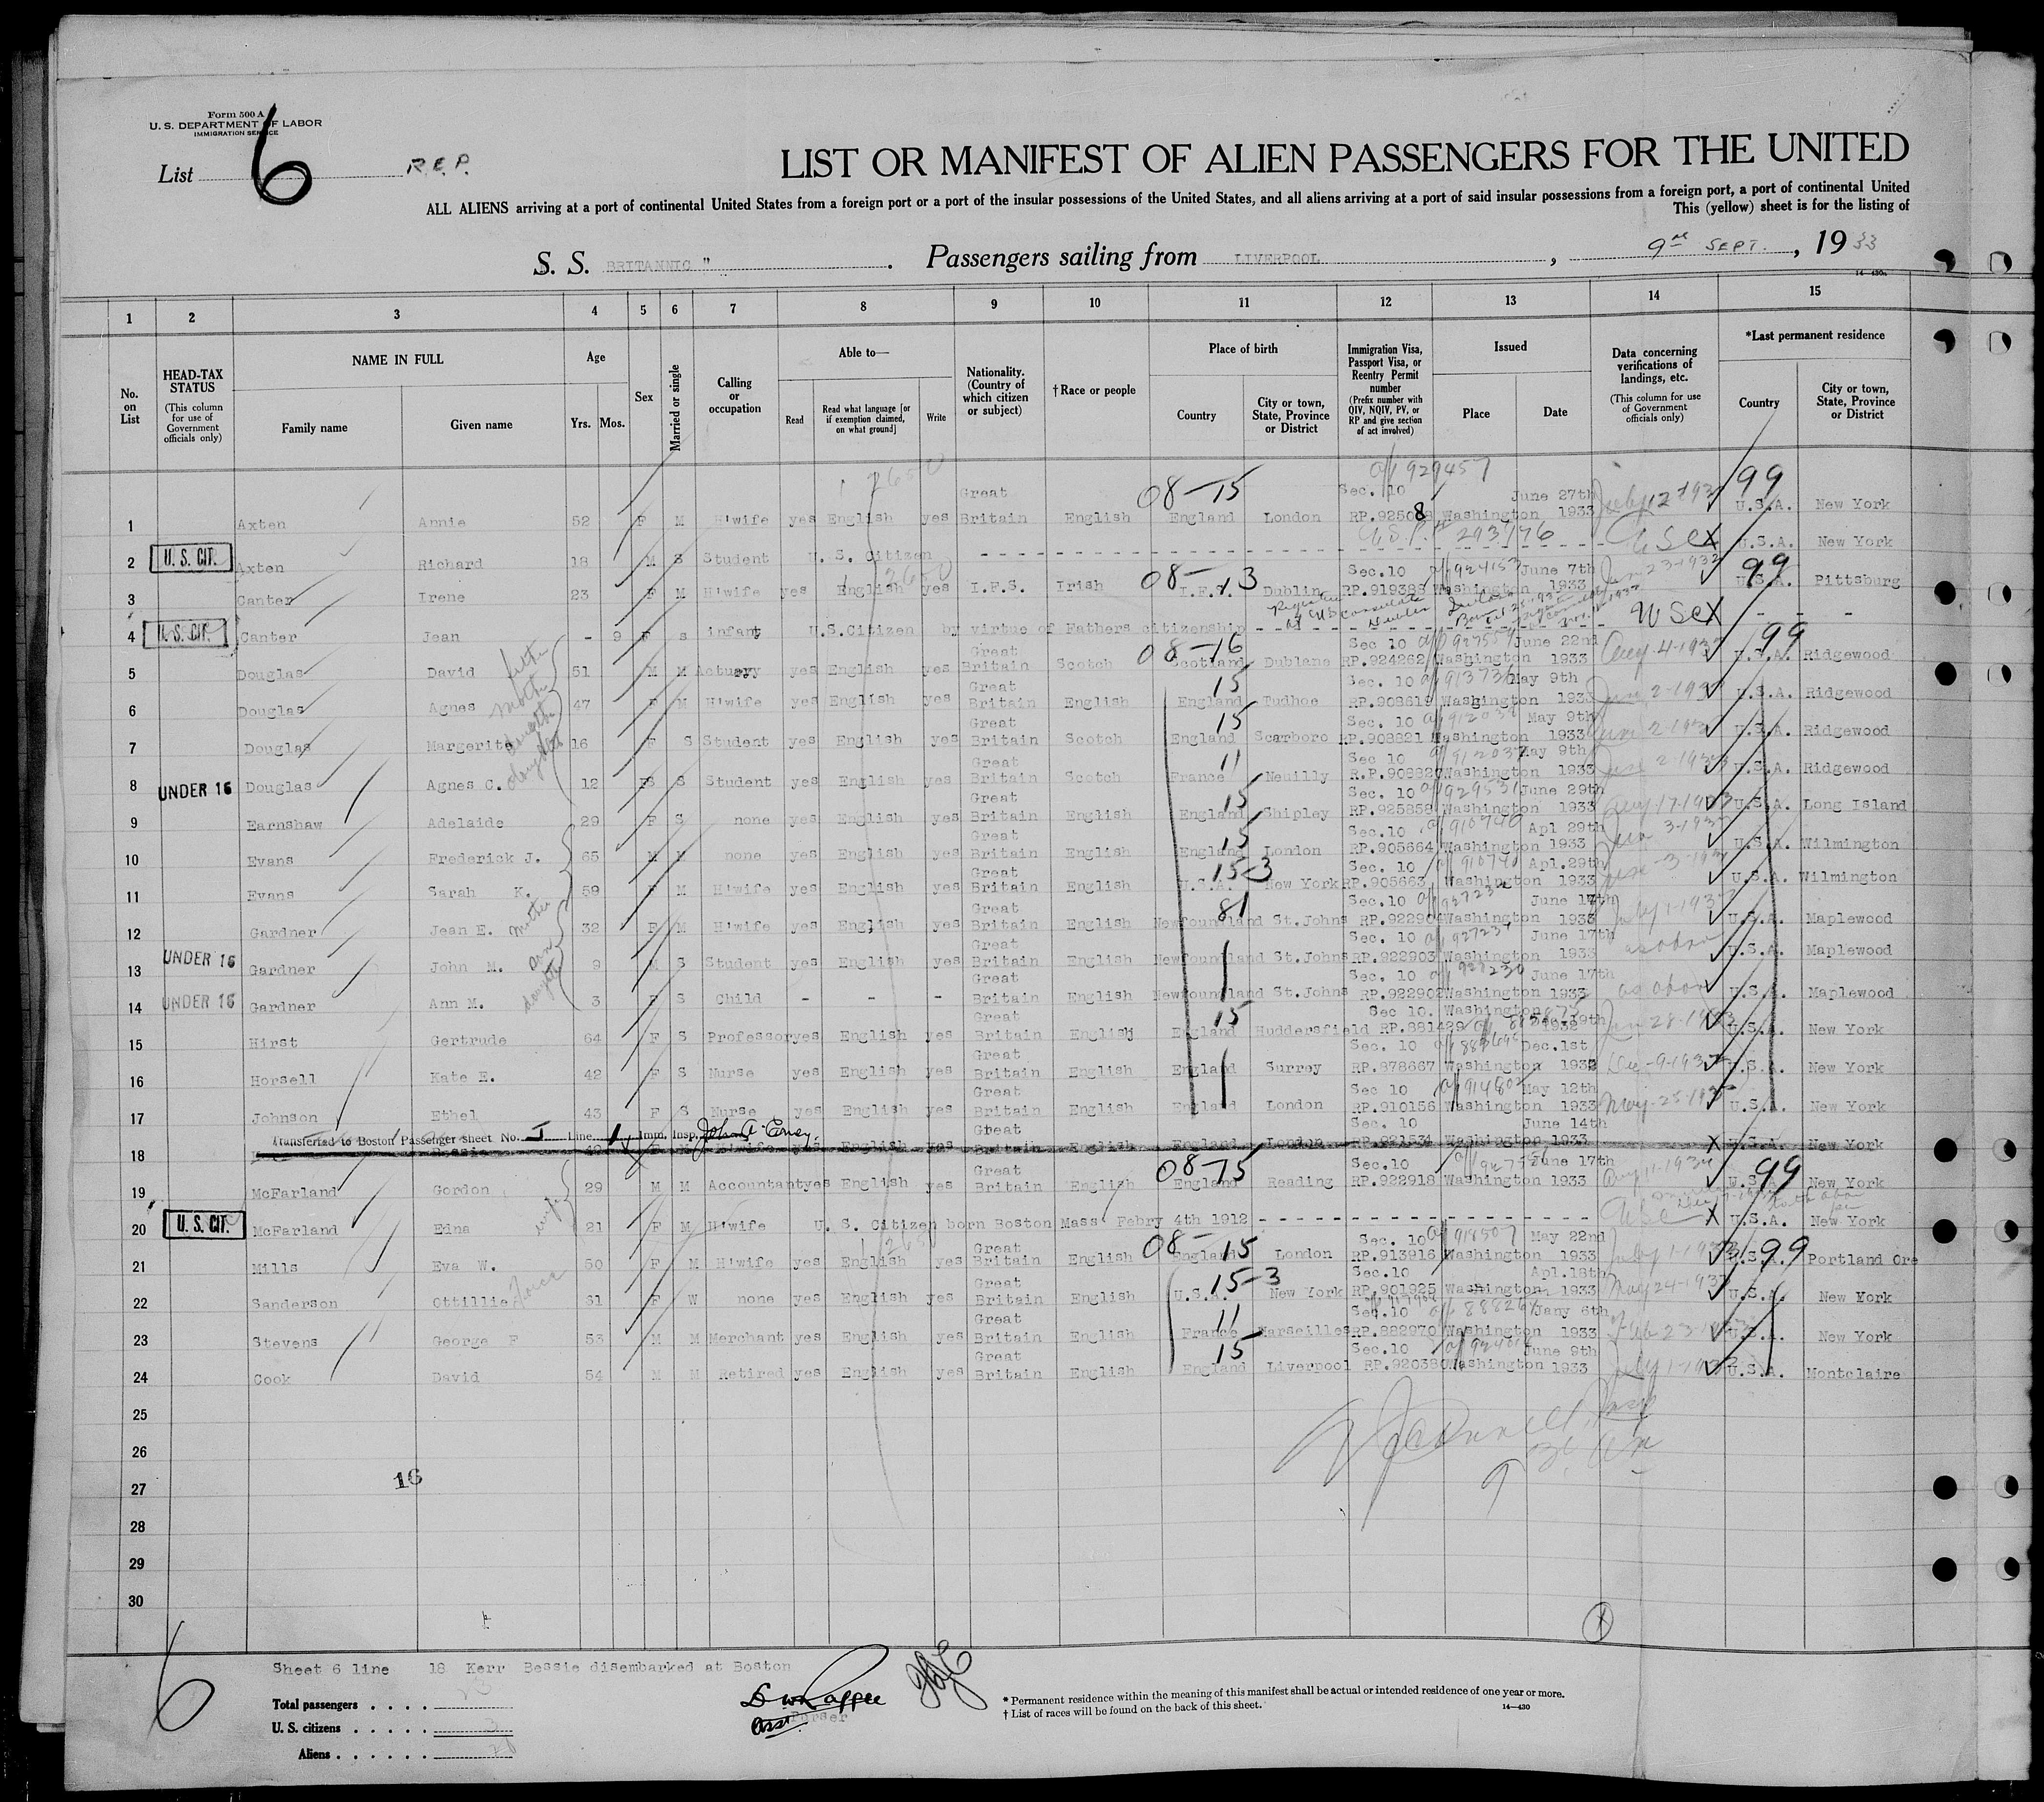 Form 500 A
U. S. DEPARTMENT OF LABOR
IMMIGRATION SERVICE
List 6 R.E.P.
LIST OR MANIFEST OF ALIEN PASSENGERS FOR THE UNITED
ALL ALIENS arriving at a port of continental United States from a foreign port or a port of the insular possessions of the United States, and all aliens arriving at a port of said insular possessions from a foreign port, a port of continental United
This (yellow) sheet is for the listing of
S. S. BRITANNIC " . Passengers sailing from LIVERPOOL , 9th SEPT. , 1933
14—430a
1 2 3 4 5 6 7 8 9 10 11 12 13 14 15
No. on List
HEAD-TAX STATUS (This column for use of Government officials only)
NAME IN FULL Family name Given name
Age Yrs. Mos.
Sex
Married or single
Calling or occupation
Able to— Read Read what language [or if exemption claimed, on what ground] Write
Nationality. (Country of which citizen or subject)
†Race or people
Place of birth Country City or town, State, Province or District
Immigration Visa, Passport Visa, or Reentry Permit number (Prefix number with QIV, NQIV, PV, or RP and give section of act involved)
Issued Place Date
Data concerning verifications of landings, etc. (This column for use of Government officials only)
*Last permanent residence Country City or town, State, Province or District
929457
Great 08-15 Sec. 10 June 27th 99
1 Axten Annie 52 F M H'wife yes English yes Britain English England London RP.925088 Washington 1933 U.S.A. New York
293176
2 U. S. CIT. Axten Richard 18 M S Student U. S. Citizen - - - USC X U.S.A. New York
08-13 Sec.10 924153 June 7th 99
3 Canter Irene 23 F M H'wife yes English yes I.F.S. Irish I.F.S. Dublin RP.919388 Washington 1933 U.S.A. Pittsburg
4 U. S. CIT. Canter Jean - 9 F s infant U.S.Citizen by virtue of Fathers citizenship - - - USC X - - -
Great 08-16 Sec 10 June 22nd 99
5 Douglas David 51 M M Actuary yes English yes Britain Scotch Scotland Dublane RP.924262 Washington 1933 Aug-4-1932 U.S.A. Ridgewood
Great 15 Sec. 10 May 9th
6 Douglas Agnes mother 47 F M H'wife yes English yes Britain English England Tudhoe RP.908619 Washington 1933 U.S.A. Ridgewood
Great 15 Sec. 10 May 9th
7 Douglas Margerite 16 F S Student yes English yes Britain Scotch England Scarboro RP.908821 Washington 1933 U.S.A. Ridgewood
Great 11 Sec 10 May 9th
8 UNDER 16 Douglas Agnes C. daughter 12 FS S Student yes English yes Britain Scotch France Neuilly R.P.908820 Washington 1933 U.S.A. Ridgewood
Great 15 Sec. 10 929531 June 29th
9 Earnshaw Adelaide 29 F S none yes English yes Britain English England Shipley RP.925858 Washington 1933 U.S.A. Long Island
Great 15 Sec.10 910740 Apl 29th
10 Evans Frederick J. 65 M M none yes English yes Britain English England London RP.905664 Washington 1933 U.S.A. Wilmington
Great 15-3 Sec. 10 910741 Apl.29th
11 Evans Sarah K. 59 F M H'wife yes English yes Britain English U.S.A. New York RP.905663 Washington 1933 U.S.A. Wilmington
Great 81 Sec.10 June 17th
12 Gardner Jean E. mother 32 F M H'wife yes English yes Britain English Newfoundland St.Johns RP.922904 Washington 1933 July 1-1932 U.S.A. Maplewood
Great Sec. 10 June 17th
13 UNDER 16 Gardner John M. son 9 M S Student yes English yes Britain English Newfoundland St.Johns RP.922903 Washington 1933 as above U.S.A. Maplewood
Great Sec. 10 927230 June 17th
14 UNDER 16 Gardner Ann M. daughter 3 F S Child - - - Britain English Newfoundland St.Johns RP.922902 Washington 1933 as above U.S.A. Maplewood
Great 15 Sec 10. Washington
15 Hirst Gertrude 64 F S Professor yes English yes Britain English England Huddersfield RP.881429 1932 U.S.A. New York
Great Sec. 10 Dec.1st
16 Horsell Kate E. 42 F S Nurse yes English yes Britain English England Surrey RP.878667 Washington 1932 U.S.A. New York
Great Sec 10 914802 May 12th
17 Johnson Ethel 43 F S Nurse yes English yes Britain English England London RP.910156 Washington 1933 U.S.A. New York
Transferred to Boston Passenger sheet No. I Line 1 Imm. Insp.
Great Sec. 10 June 14th
18 Bessie F M H'wife yes English yes Britain English England London RP.921534 Washington 1933 X U.S.A. New York
Great 08-15 Sec.10 June 17th 99
19 McFarland Gordon 29 M M Accountant yes English yes Britain English England Reading RP.922918 Washington 1933 U.S.A. New York
20 U. S. CIT. McFarland Edna wife 21 F M H'wife U. S. Citizen born Boston Mass Febry 4th 1912 - - - USC X U.S.A. New York
Great 08-15 Sec. 10 918507 May 22nd 99
21 Mills Eva W. 50 F M H'wife yes English yes Britain English England London RP.913916 Washington 1933 U.S.A. Portland Ore
Great 15-3 Sec.10 Apl.18th
22 Sanderson Ottillie 61 F W none yes English yes Britain English U.S.A. New York RP.901925 Washington 1933 May 24-1932 U.S.A. New York
Great 11 Sec.10 Jany 6th
23 Stevens George F 53 M M Merchant yes English yes Britain English France Marseilles RP.882970 Washington 1933 U.S.A. New York
Great 15 Sec.10 June 9th
24 Cook David 54 M M Retired yes English yes Britain English England Liverpool RP.920380 Washington 1933 U.S.A. Montclaire
25
26
27 16
28
29
30
X
6
Sheet 6 line 18 Kerr Bessie disembarked at Boston
Total passengers . . . .
U. S. citizens . . . . .
Aliens . . . . . .
Asst Purser
* Permanent residence within the meaning of this manifest shall be actual or intended residence of one year or more.
† List of races will be found on the back of this sheet.
14—430